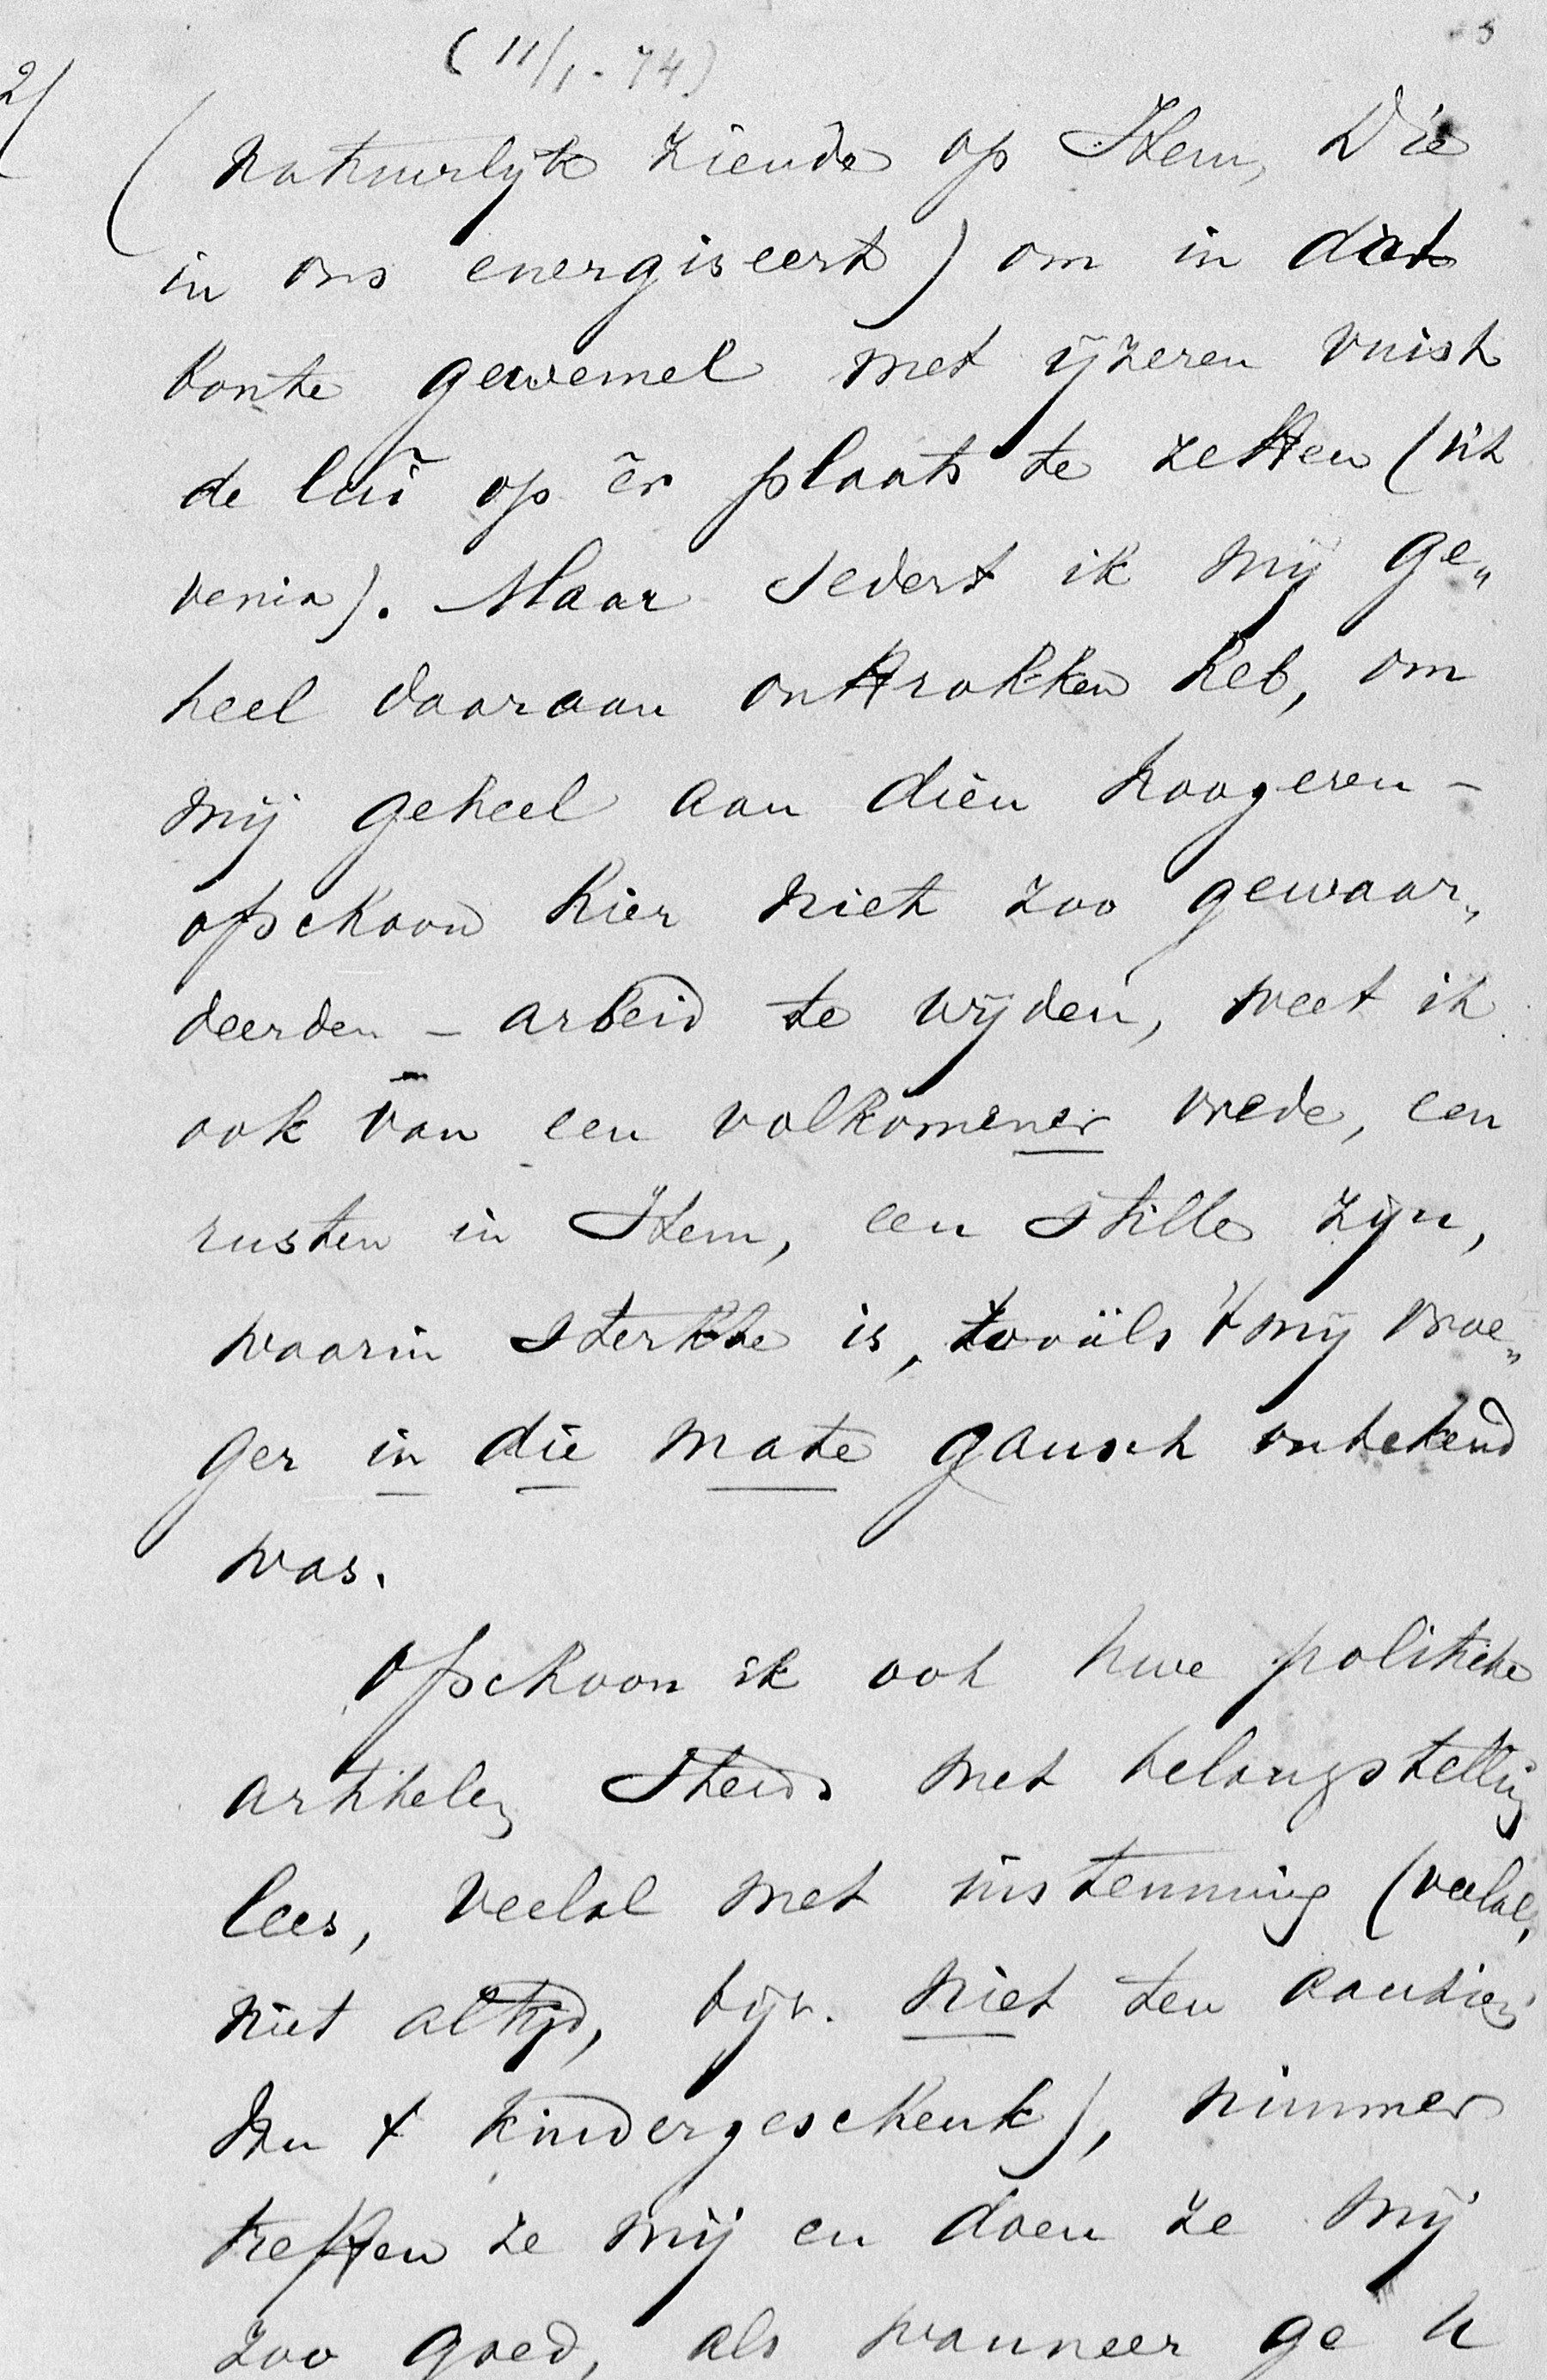 (11/1. 74)
2/
(natuurlijk ziende op Hem, Die
in ons energiseert) om in dat
bonte gewemel met ijzeren vuist
de lui op er plaats te zetten (sit
venia). Maar sedert ik mij ge„
heel daaraan onttrokken heb, om
mij geheel aan dien hoogeren –
ofschoon hier niet zoo gewaar„
deerden – arbeid te wijden, weet ik
ook van een volkomener vrede, een
rusten in Hem, een stille zijn,
waarin sterkte is, zooals 't mij vroe„
ger in die mate gansch onbekend
was.
Ofschoon ik ook uwe politieke
artikelen steeds met belangstelling
lees, veelal met instemming (veelal,
niet altijd, bijv. niet ten aanzien
van 't kindergeschenk), nimmer
treffen ze mij en doen ze mij
zoo goed, als wanneer ge u